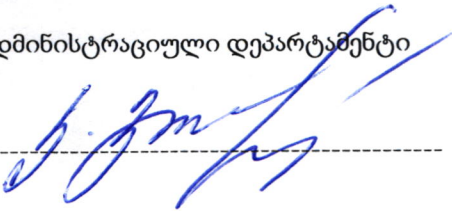 დმინისტრაციული დეპარტამენტი